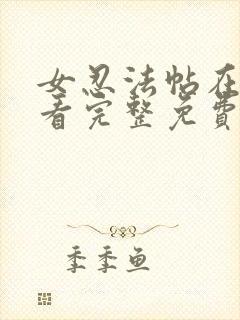 女忍法帖在
看完整免费
季季鱼